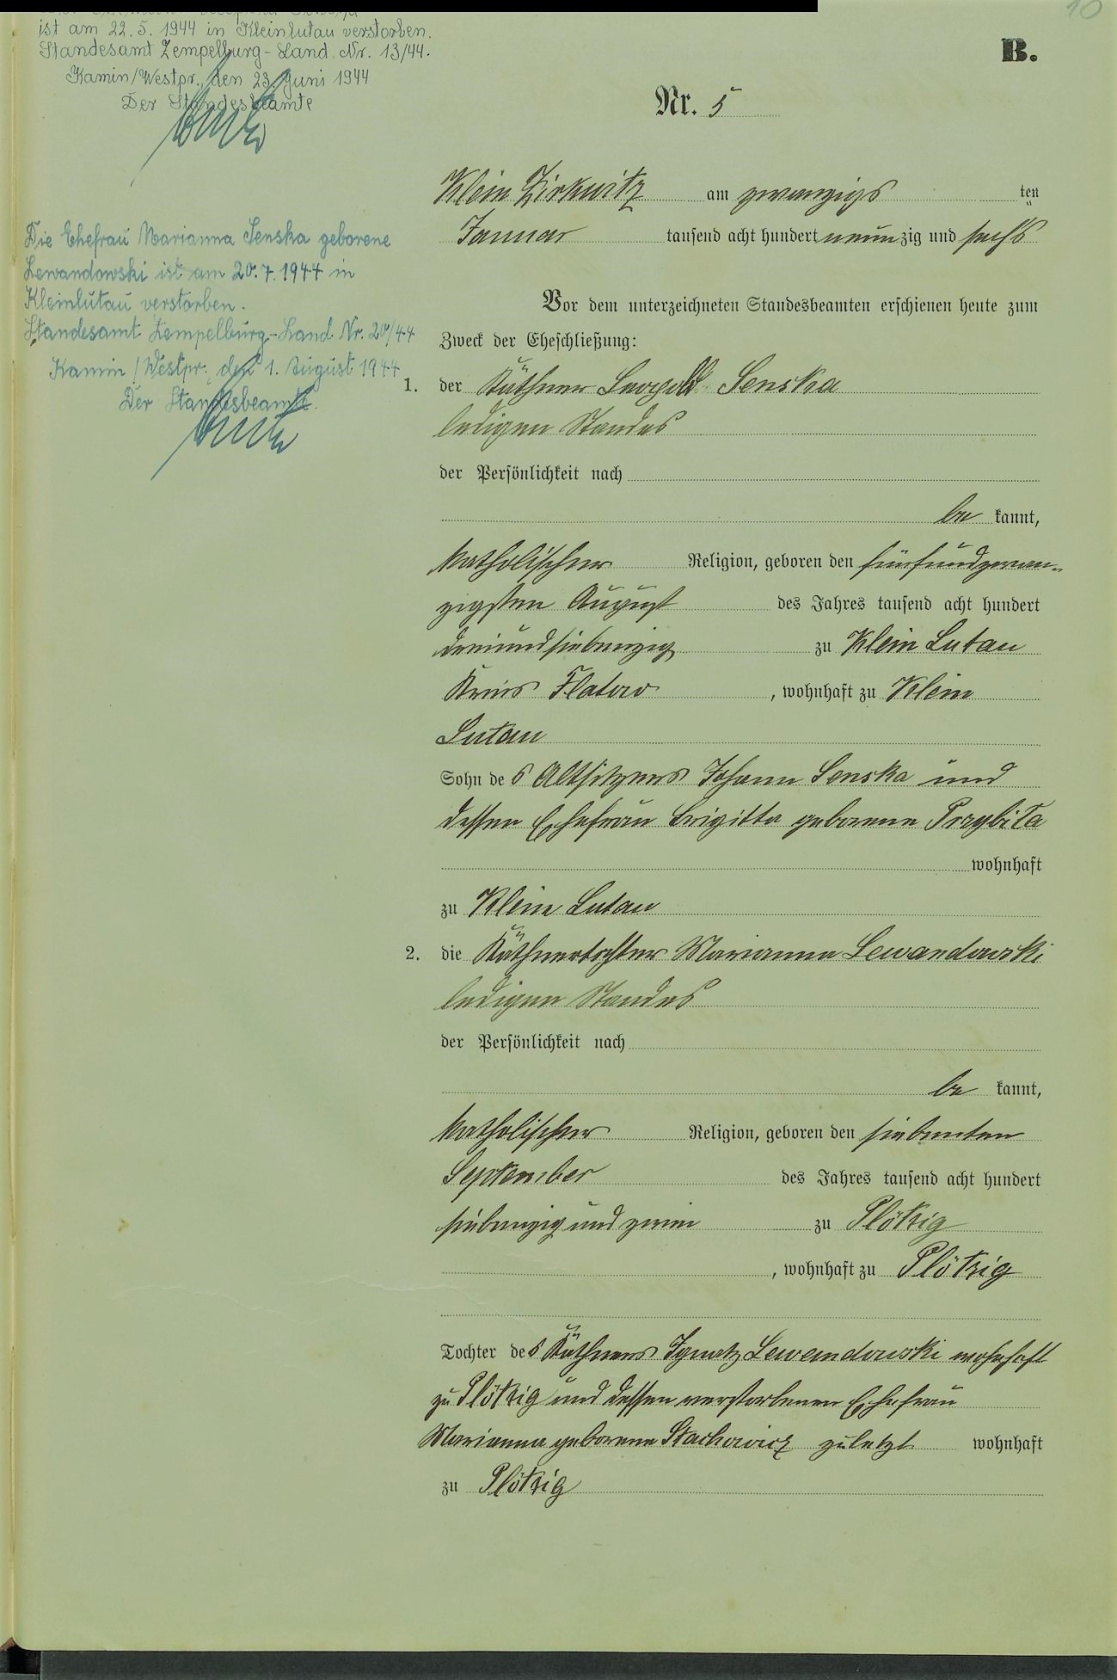 10
ist am 22.5.1944 in Kleinlutau verstorben.
Standesamt Zempelburg-Land Nr. 13/44.
Kamin/Westpr., den 23. Juni 1944
Der Standesbeamte
Die Ehefrau Marianna Senska geborene
Lewandowski ist am 20.7.1944 in
Kleinlutau verstorben.
Standesamt Zempelburg-Land Nr. 20/44
Kamin/Westpr., den 1. August 1944
Der Standesbeamte.
B.
Nr. 5
Klein Zirkwitz am zwanzigs ten
Januar tausend acht hundert neunzig und sechs
Vor dem unterzeichneten Standesbeamten erschienen heute zum
Zweck der Eheschließung:
1. der Käthner Leopold Senska
ledigen Standes
der Persönlichkeit nach
be kannt,
katholischer Religion, geboren den fünfundzwan-
zigsten August des Jahres tausend acht hundert
dreiundsiebenzig zu Klein Lutau
Kreis Flatow, wohnhaft zu Klein
Lutau
Sohn des Altsitzers Johann Senska und
dessen Ehefrau Brigitta geborene Przybila
wohnhaft
zu Klein Lutau
2. die Käthnertochter Marianna Lewandowski
ledigen Standes
der Persönlichkeit nach
be kannt,
katholischer Religion, geboren den siebenten
September des Jahres tausend acht hundert
siebenzig und zwei zu Plötzig
, wohnhaft zu Plötzig
Tochter des Käthners Ignatz Lewandowski wohnhaft
zu Plötzig und dessen verstorbenen Ehefrau
Marianna geborene Stachowicz zuletzt wohnhaft
zu Plötzig